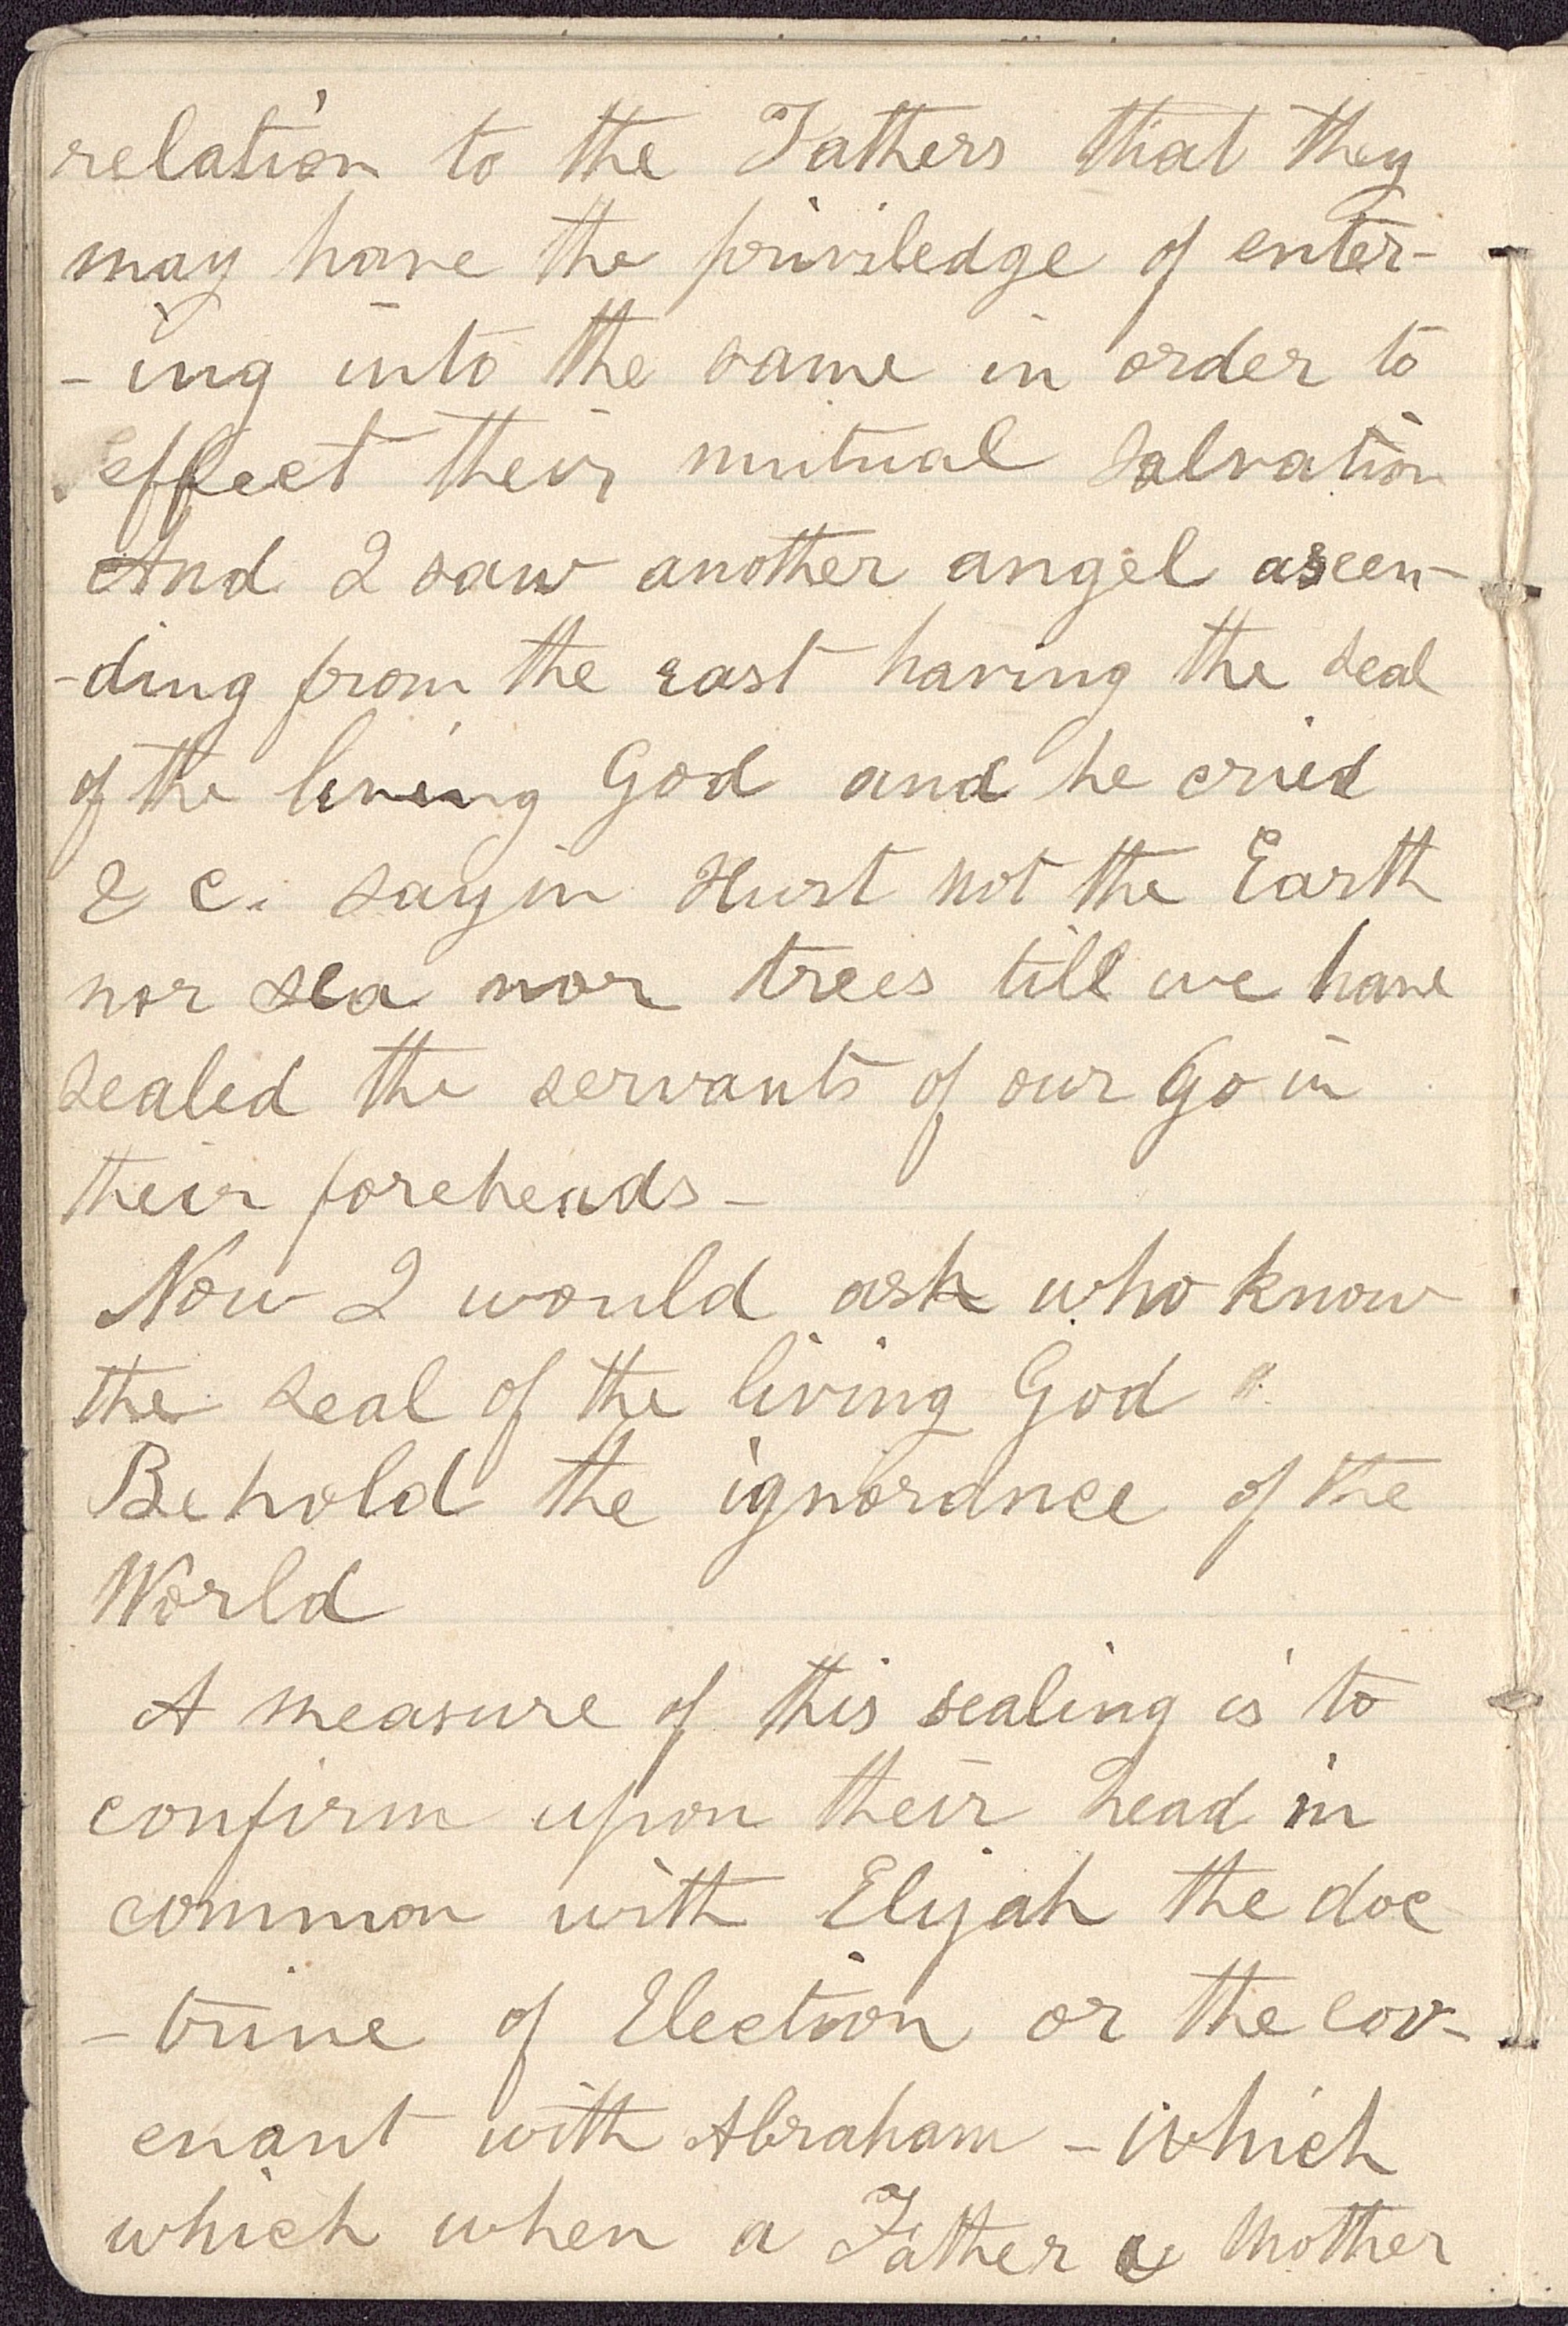 relation to the Fathers that they
may have the priviledge of enter-
- ing into the same in order to
effect their mutual Salvation
And I saw another angel ascen-
-ding from the east having the seal
of the living God and he cried
& c. sayin Hurt not the Earth
nor sea nor trees till we have
sealed the servants of our Go in
their foreheads -
Now I would ask who know
the seal of the living God
Behold the ignorance of the
World
A measure of this sealing is to
confirm upon their head in
common with Elijah the doc
- trine of Election or the cov-
enant with Abraham - which
which when a Father & Mother